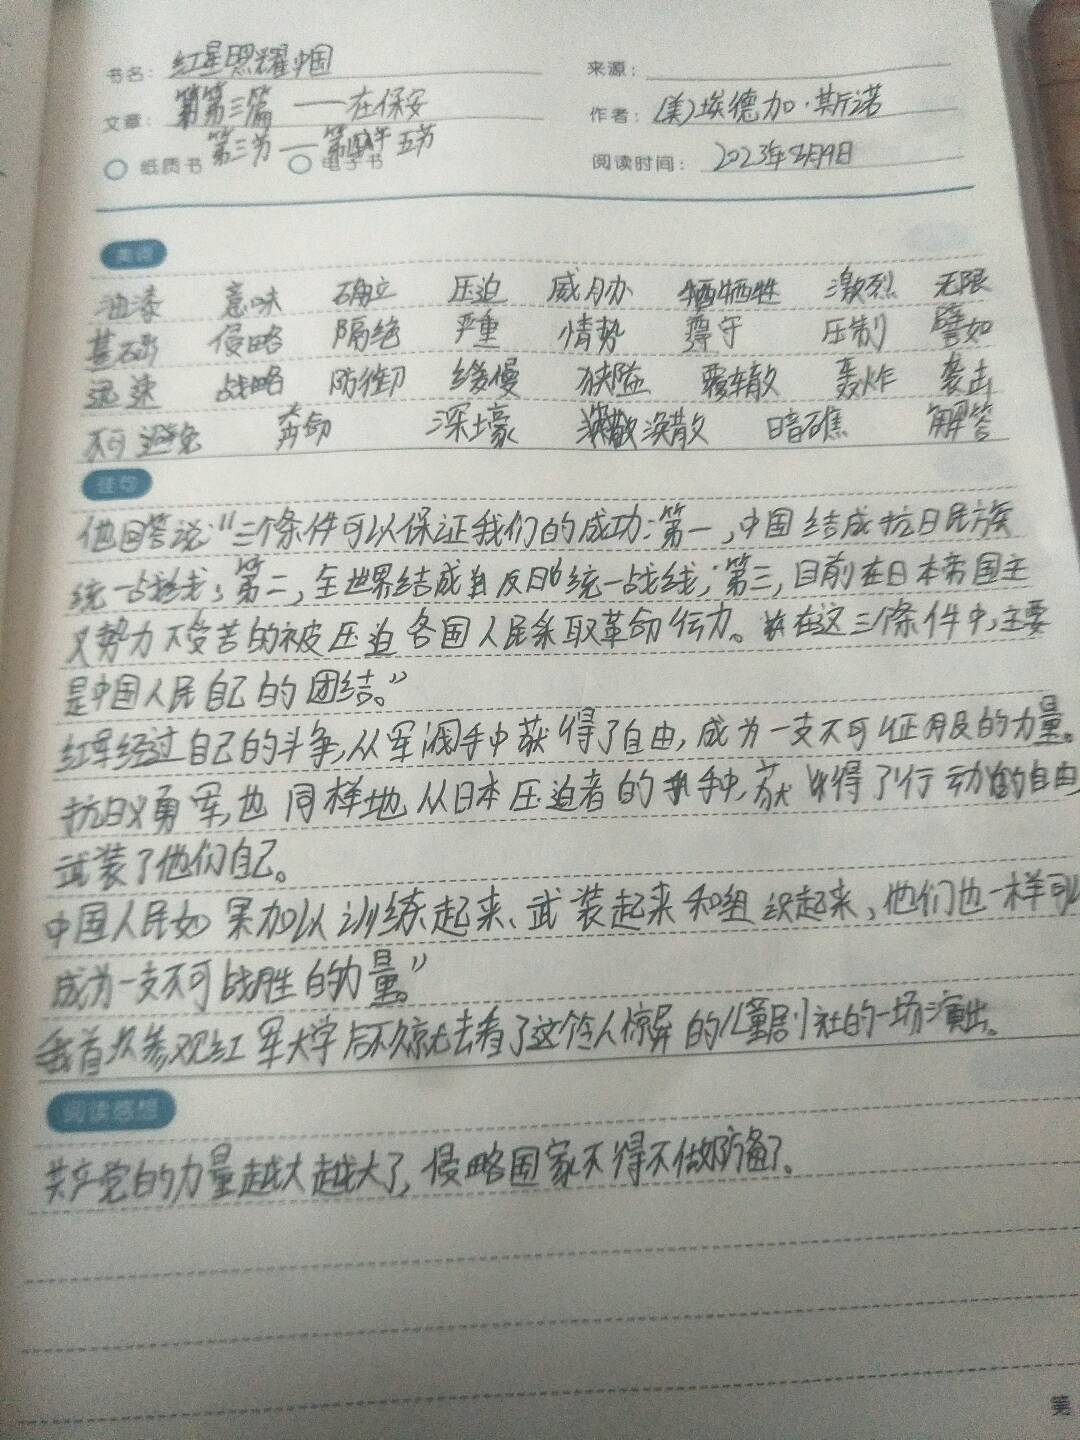 书名: 红星照耀中国
来源:
文章: 第三篇 ——在保安
作者: (美)埃德加·斯诺
第三节——第五节
纸质书 电子书
阅读时间: 2023年8月19日
美词
油漆 意味 确立 压迫 威胁 牺牲 激烈 无限
基础 侵略 隔绝 严重 情势 遵守 压制 譬如
迅速 战略 防御 缓慢 狭隘 覆辙 轰炸 袭击
不可避免 奔劲 深壕 涣散 暗礁 解答
佳句
他回答说:"三个条件可以保证我们的成功:第一,中国结成抗日民族
统一战线;第二,全世界结成反日统一战线;第三,目前在日本帝国主
义势力下受苦的被压迫各国人民采取革命行动。在这三个条件中,主要
是中国人民自己的团结。"
红军经过自己的斗争,从军阀手中获得了自由,成为一支不可征服的力量。
抗日义勇军,也同样地,从日本压迫者的手中,获得了行动的自由
武装了他们自己。
中国人民如果加以训练起来、武装起来和组织起来,他们也一样可以
成为一支不可战胜的力量。"
我首次参观红军大学后不久就去看了这个令人惊异的儿童剧社的一场演出。
阅读感想
共产党的力量越大越大了,侵略国家不得不做防备了。
第